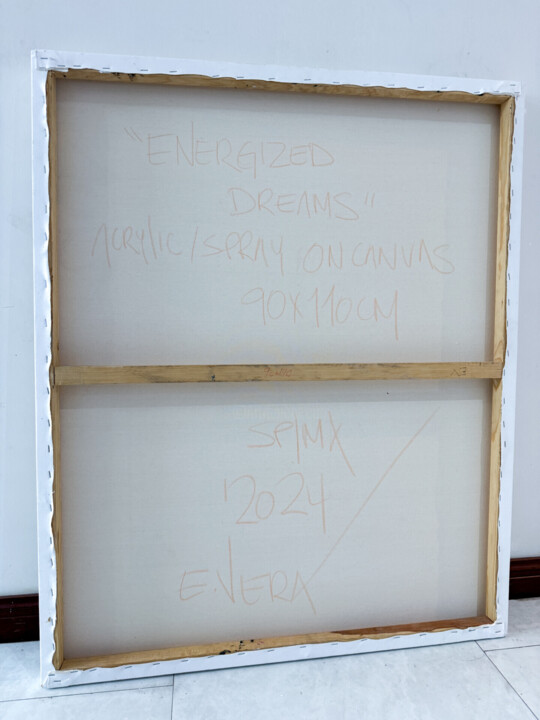 "ENERGIZED
DREAMS"
ACRYLIC/SPRAY ON CANVAS
90X110CM
SP/MX
'2024
E.VERA